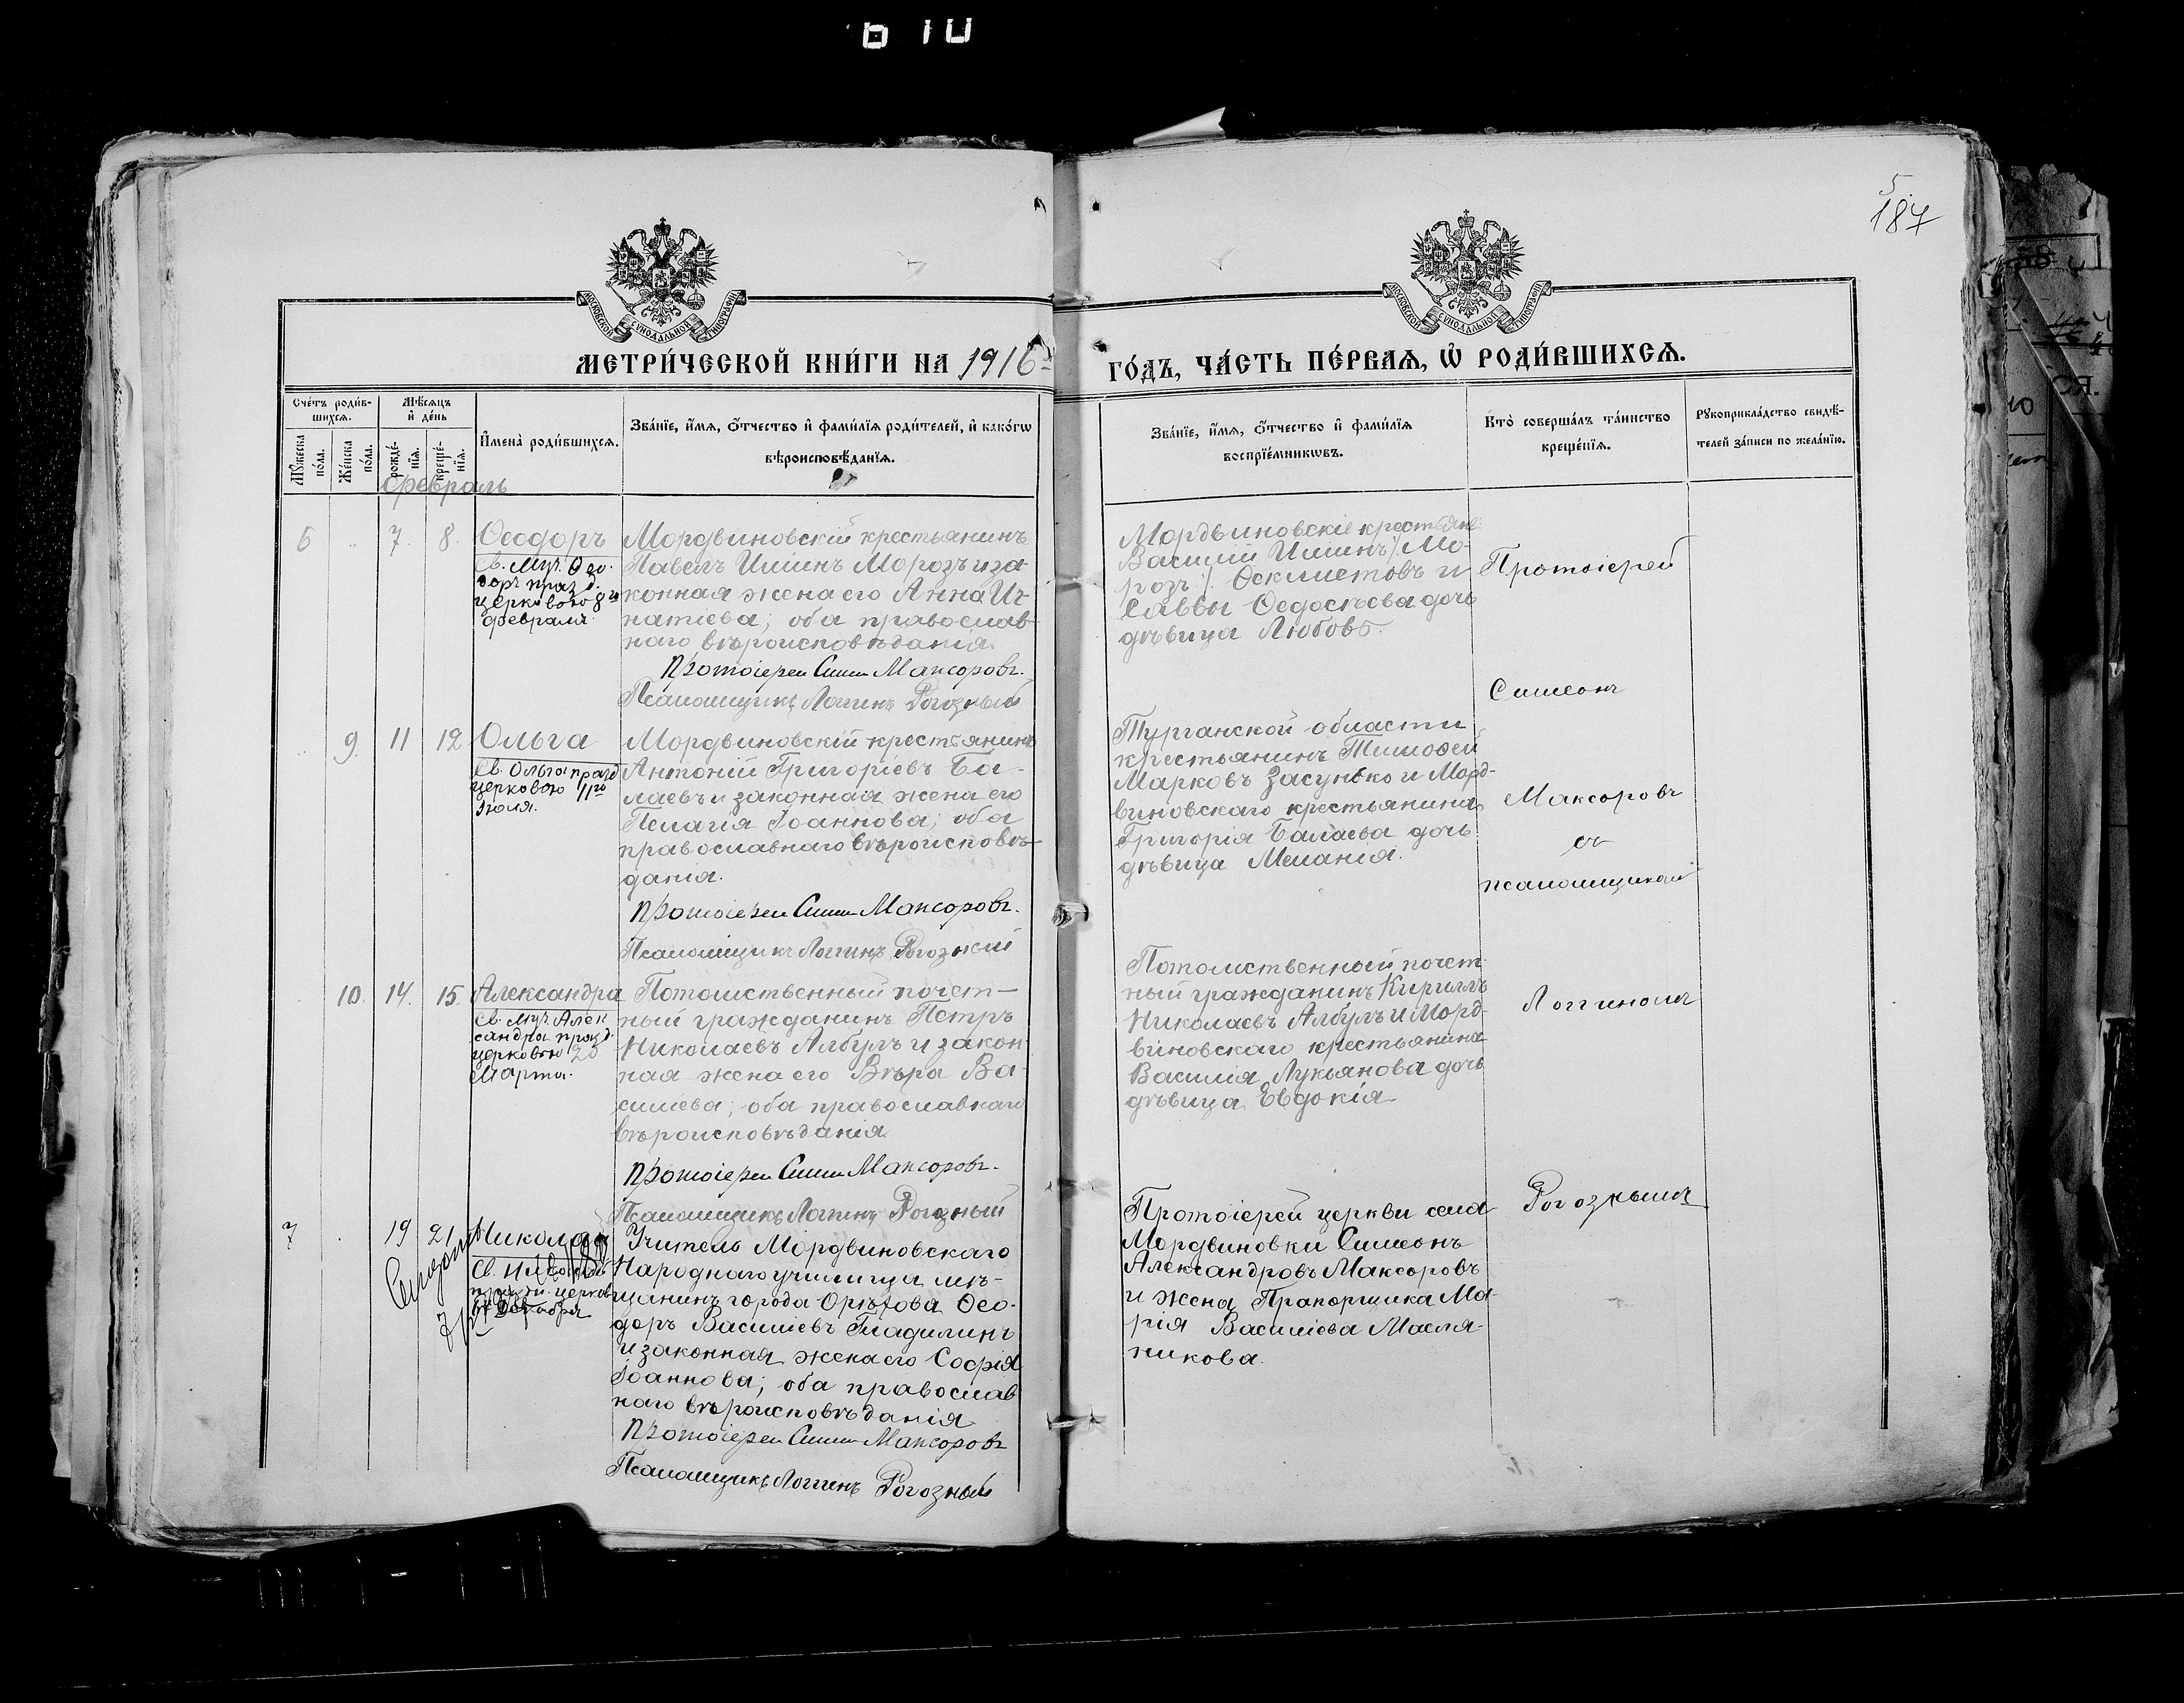 5.
187
МОСКОВСКОЙ СѴНОДАЛЬНОЙ ТИПОГРАФІИ
МОСКОВСКОЙ СѴНОДАЛЬНОЙ ТИПОГРАФІИ
МЕТРИ́ЧЕСКОЙ КНИ́ГИ НА 1916 й
ГО́ДЪ, ЧА́СТЬ ПЕ́РВАЯ, Ѽ РОДИ́ВШИХСЯ.
Сче́тъ роди́в-
шихся.
Мꙋ́жеска
по́ла.
Же́нска
по́ла.
Мѣ́сяцъ
и҆ де́нь
рожде́-
нїя.
креще́-
нїя.
И҆мена̀ роди́вшихся.
Зва́нїе, и҆́мя, ѻ҆́тчество и҆ фами́лїя роди́телей, и҆ како́гѡ
вѣроисповѣ́данїя.
Зва́нїе, и҆́мя, ѻ҆́тчество и҆ фами́лїя
воспрїе́мникѡвъ.
Кто̀ соверша́лъ та́инство
креще́нїя.
Рꙋкоприкла́дство свидѣ́-
телей за́писи по жела́нїю.
Февраль
6 7. 8. Ѳеодоръ
Св. Муч. Ѳео-
доръ празд.
церковью 8го
февраля.
Мордвиновскій крестьянинъ
Павелъ Иминъ Морозъ и за-
конная жена его Анна Иг-
натіева; оба православ-
наго вѣроисповѣданія.
Протоіерей Симеонъ Максоровъ.
Псаломщикъ Логгинъ Рогозный
Мордвиновскіе крестьяне:
Василій Иминъ /Мо-
розъ/ Ѳеклистовъ и
Саввы Ѳедосѣева дочь
дѣвица Любовь.
Протоіерей
Симеонъ
Максоровъ
съ
псаломщикомъ
Логгиномъ
Рогознымъ
9. 11 12 Ольга
Св. Ольга празд
церковью 11го
Іюля.
Мордвиновскій крестьянинъ
Антоній Григоріевъ Ба-
лаевъ и законная жена его
Пелагія Іоаннова; оба
православнаго вѣроисповѣ-
данія.
Протоіерей Симеонъ Максоровъ.
Псаломщикъ Логгинъ Рогозный
Турганской области
крестьянинъ Тимоѳей
Марковъ Засунько и Морд-
виновскаго крестьянина
Григорія Балаева дочь
дѣвица Меланія.
10. 14. 15. Александра
Св. Муч. Алек
сандра празд.
церковью 20
Марта.
Потомственный почет-
ный гражданинъ Петръ
Николаевъ Албулъ и закон-
ная жена его Вѣра Ва-
силіева; оба православнаго
вѣроисповѣданія
Протоіерей Симеонъ Максоровъ.
Псаломщикъ Логгинъ Рогозный
Потомственный почет-
ный гражданинъ Кириллъ
Николаевъ Албулъ и Морд-
виновскаго крестьянина
Василія Лукьянова дочь
дѣвица Евдокія
7 19 21 Николай
Св. Николай
празд. церков.
6го Декабря
Учитель Мордвиновскаго
Народнаго училища мѣ-
щанинъ города Орѣхова Ѳео-
доръ Василіевъ Гладилинъ
и законная жена его Софія
Іоаннова; оба православ-
наго вѣроисповѣданія
Протоіерей Симеонъ Максоровъ
Псаломщикъ Логгинъ Рогозный
Протоіерей церкви села
Мордвиновки Симеонъ
Александровъ Максоровъ
и жена Прапорщика Ма-
рія Василіева Масля-
никова.